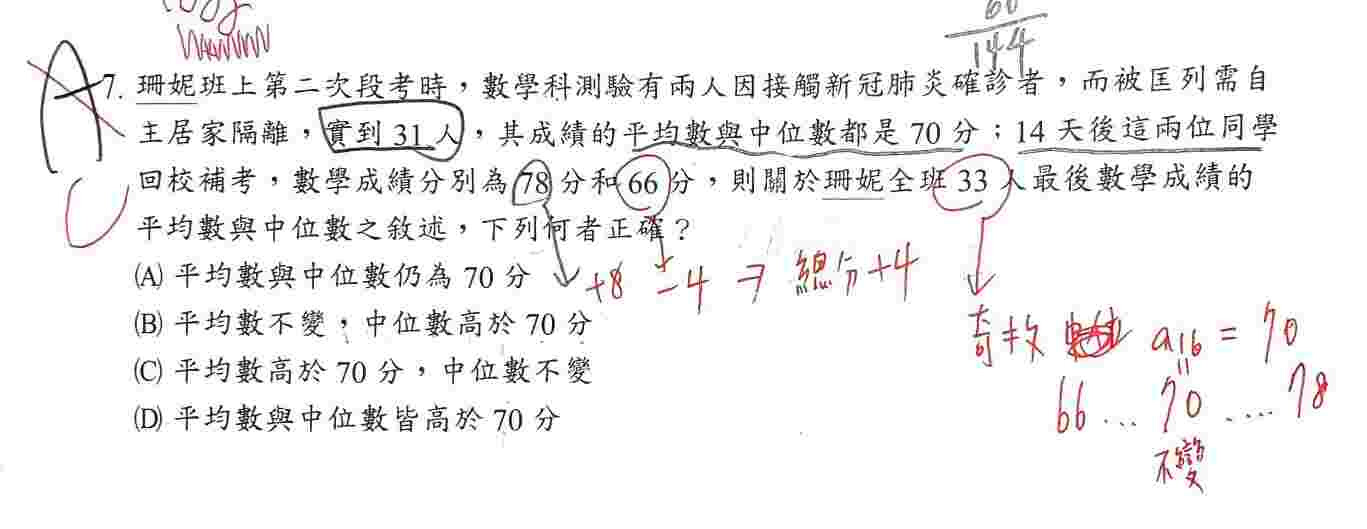 60
144
A
7. 珊妮班上第二次段考時,數學科測驗有兩人因接觸新冠肺炎確診者,而被匡列需自
主居家隔離,實到 31 人,其成績的平均數與中位數都是 70 分;14 天後這兩位同學
回校補考,數學成績分別為 78 分和 66 分,則關於珊妮全班 33 人最後數學成績的
C
平均數與中位數之敘述,下列何者正確?
(A) 平均數與中位數仍為 70 分
+8 -4 ⇒ 總分+4
(B) 平均數不變,中位數高於 70 分
奇数 a16 = 70
(C) 平均數高於 70 分,中位數不變
66 ... 70 .... 78
(D) 平均數與中位數皆高於 70 分
不變